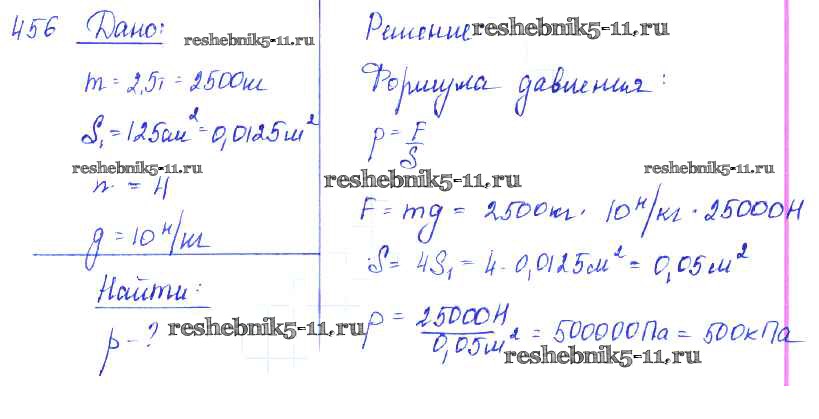 456 Дано:
reshebnik5-11.ru
m = 2,5т = 2500кг
S₁ = 125см² = 0,0125м²
reshebnik5-11.ru
n = 4
g = 10 Н/кг
Найти:
p - ?
reshebnik5-11.ru
Решение
reshebnik5-11.ru
Формула давления:
p = F/S
reshebnik5-11.ru
reshebnik5-11.ru
F = mg = 2500кг · 10 Н/кг · 25000Н
S = 4S₁ = 4 · 0,0125см² = 0,05м²
p = 25000Н / 0,05м² = 500000Па = 500кПа
reshebnik5-11.ru